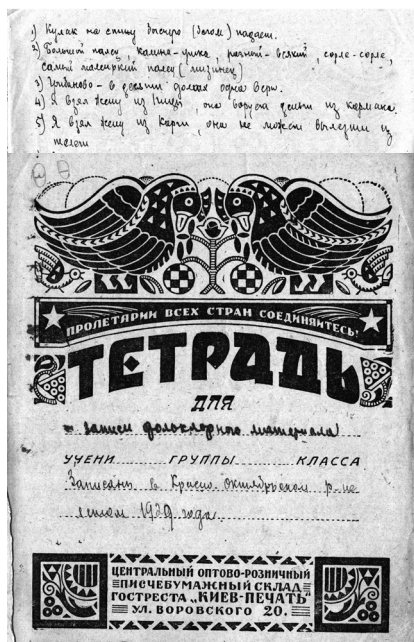 1) Кулак на спину быстро (бегом) падает.
2) Большой палец, калине-уйка, ранней-всякий, сорле-сорле,
самый маленький палец (мизинец)
3) в десяти домах одна вера.
4) Я взял жену из она ворует деньги из кармана
5) Я взял жену из она не может вылезти из
телеги
ПРОЛЕТАРИИ ВСЕХ СТРАН СОЕДИНЯЙТЕСЬ!
ТЕТРАДЬ
ДЛЯ
записи фольклорного материала
УЧЕНИ ГРУППЫ КЛАССА
Записаны в Красно-Октябрьском р-не
летом 1939 года
ЦЕНТРАЛЬНЫЙ ОПТОВО-РОЗНИЧНЫЙ
ПИСЧЕБУМАЖНЫЙ СКЛАД
ГОСТРЕСТА „КИЕВ-ПЕЧАТЬ"
УЛ. ВОРОВСКОГО 20.